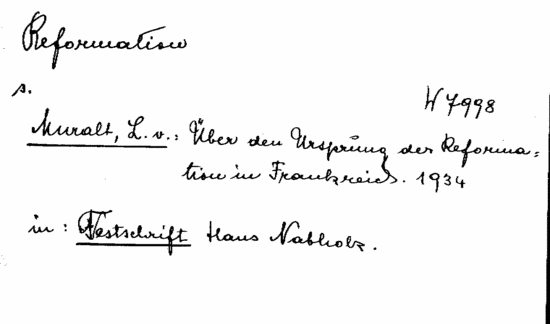 Reformation
s.
W 7998
Muralt, L. v.: Über den Ursprung der Reforma=
tion in Frankreich. 1934
in: Festschrift Hans Nabholz.